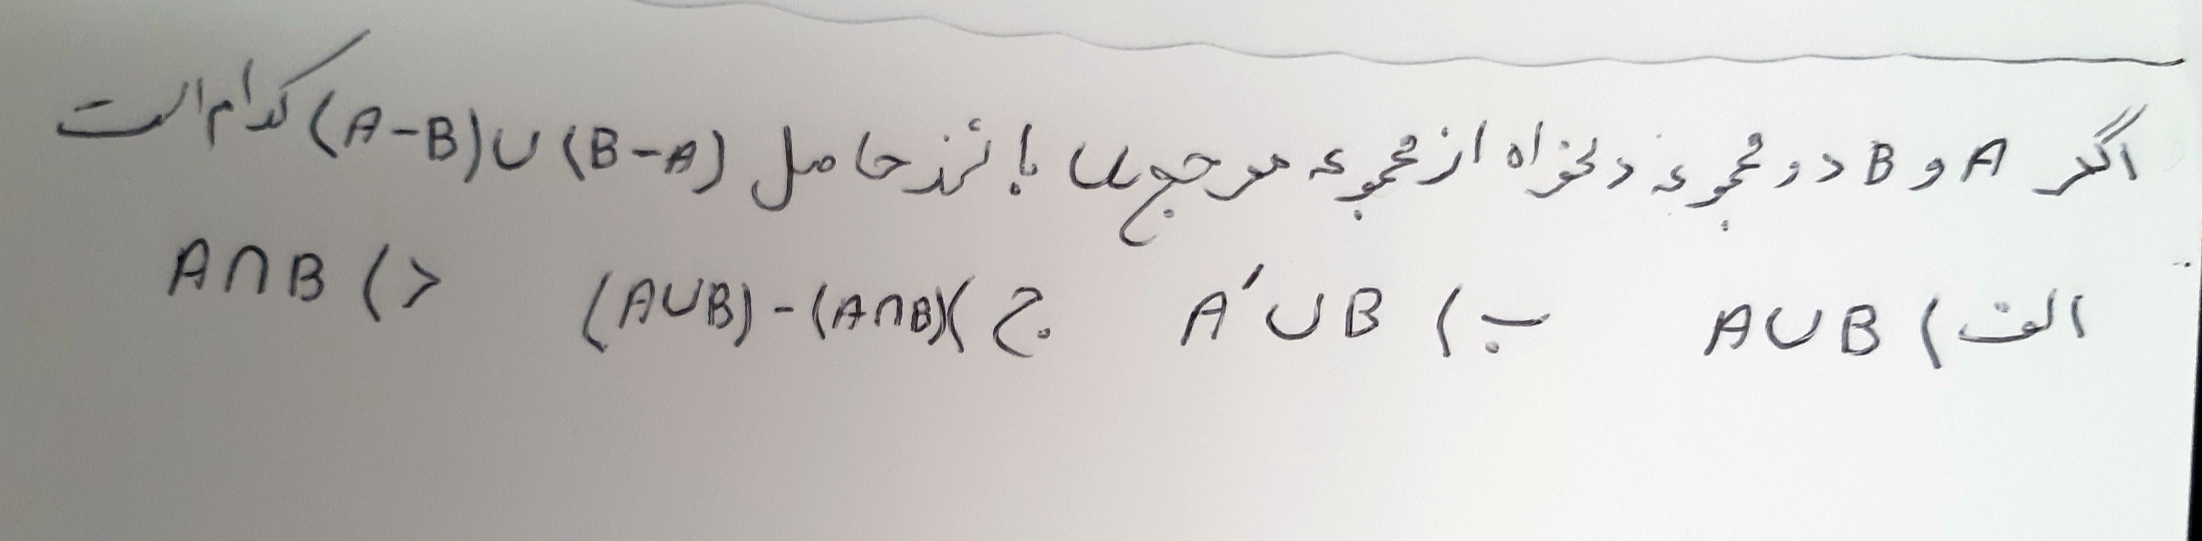 اگر A و B دو مجموعه دلخواه از مجموعه مرجع U باشند حاصل (A-B)∪(B-A) کدام است
الف) A∪B ب) A′∪B ج) (A∪B)-(A∩B) د) A∩B